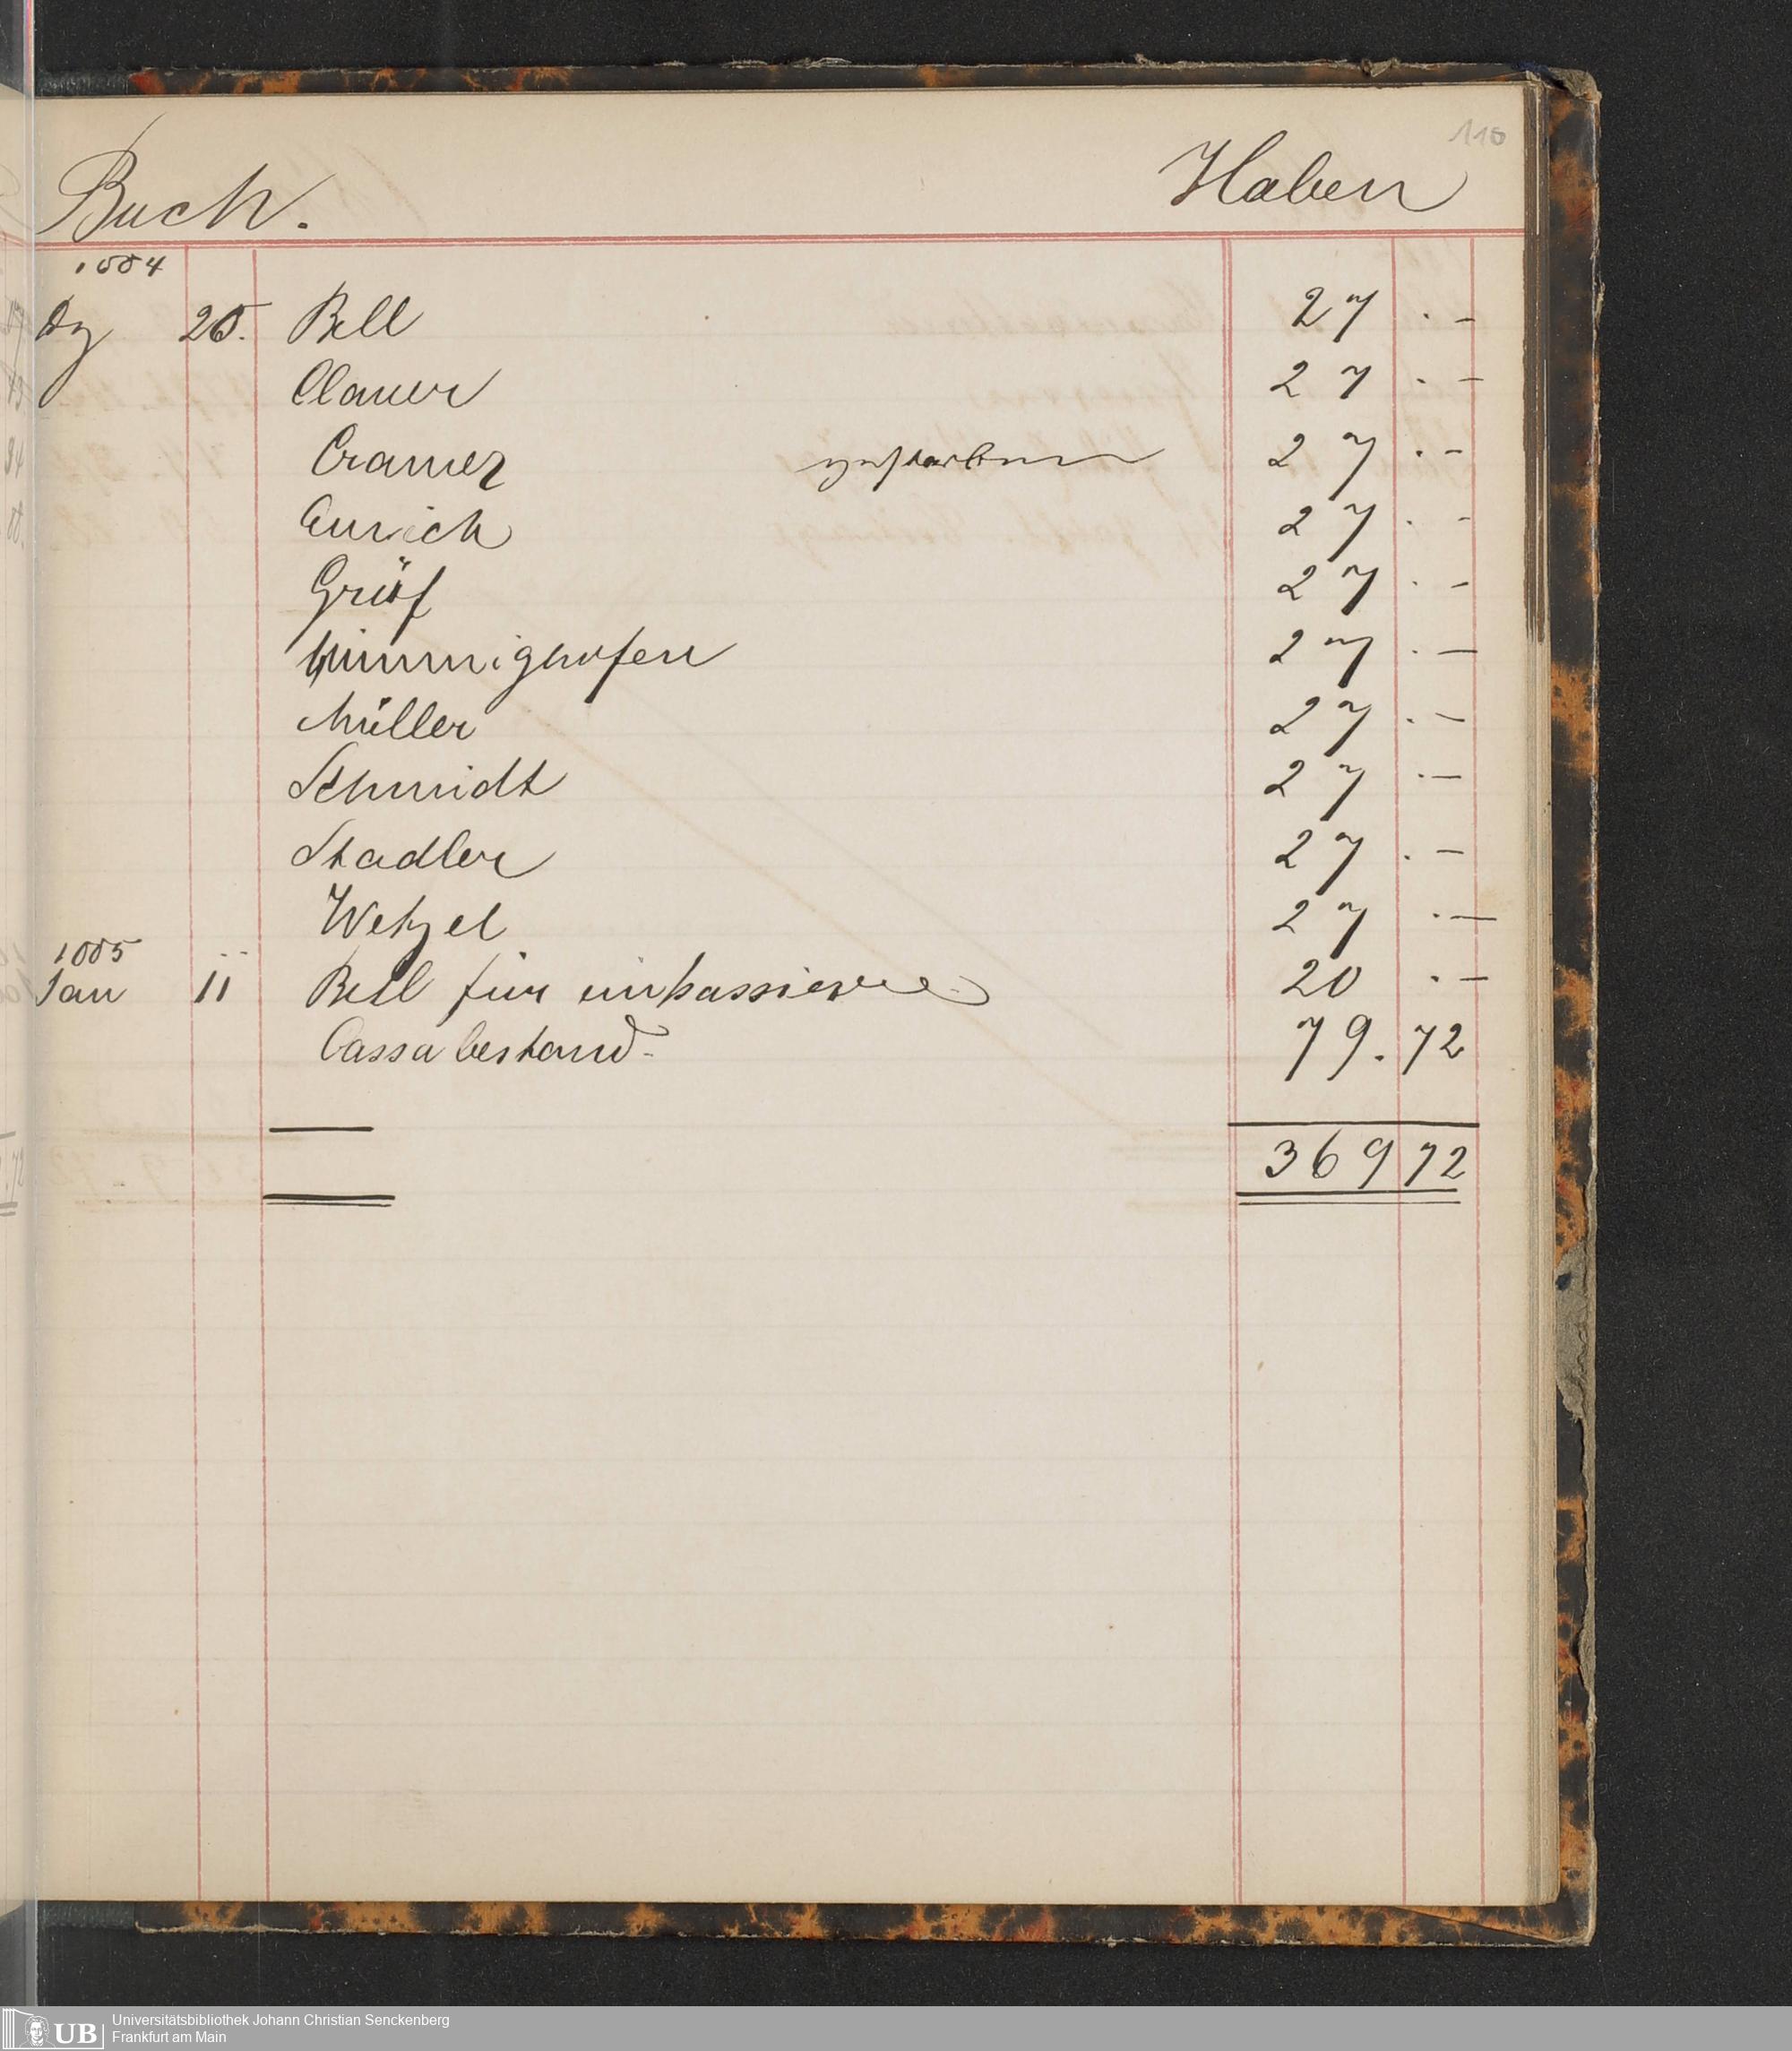 110
Buch. Haben
1884
Dz 28. Bell 27 . -
Clauer 27 . -
Cramer gestorben 27 . -
Emrich 27 . -
Gräf 27 . -
Himmighofen 27 . -
Müller 27 . -
Schmidt 27 . -
Stadler 27 . -
Wetzel 27 . -
1885
Jan 11 Bell für einkassieren 20 . -
Cassabestand - 79. 72
369 72
UB
Universitätsbibliothek Johann Christian Senckenberg
Frankfurt am Main